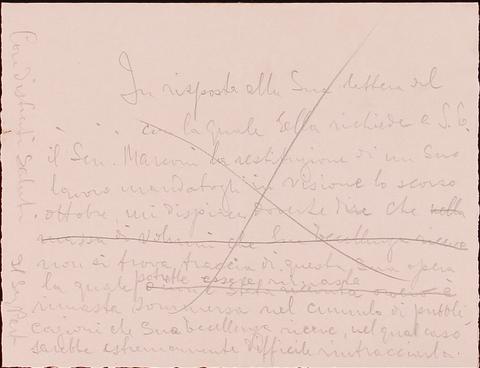 In risposta alla Sua lettera del
. . . con la quale Ella richiede a S. E.
il Sen. Marconi la restituzione di un Suo
lavoro mandatogli in visione lo scorso
ottobre, mi dispiace doverle dire che nella
massa di volumi che Sua Eccellenza riceve
non si trova traccia di questa Sua opera
potrebbe essere rimasta
la quale
rimasta sommersa nel cumulo di pubbli
cazioni che Sua Eccellenza riceve, nel qual caso
sarebbe estremamente difficile rintracciarla.
Con distinti saluti